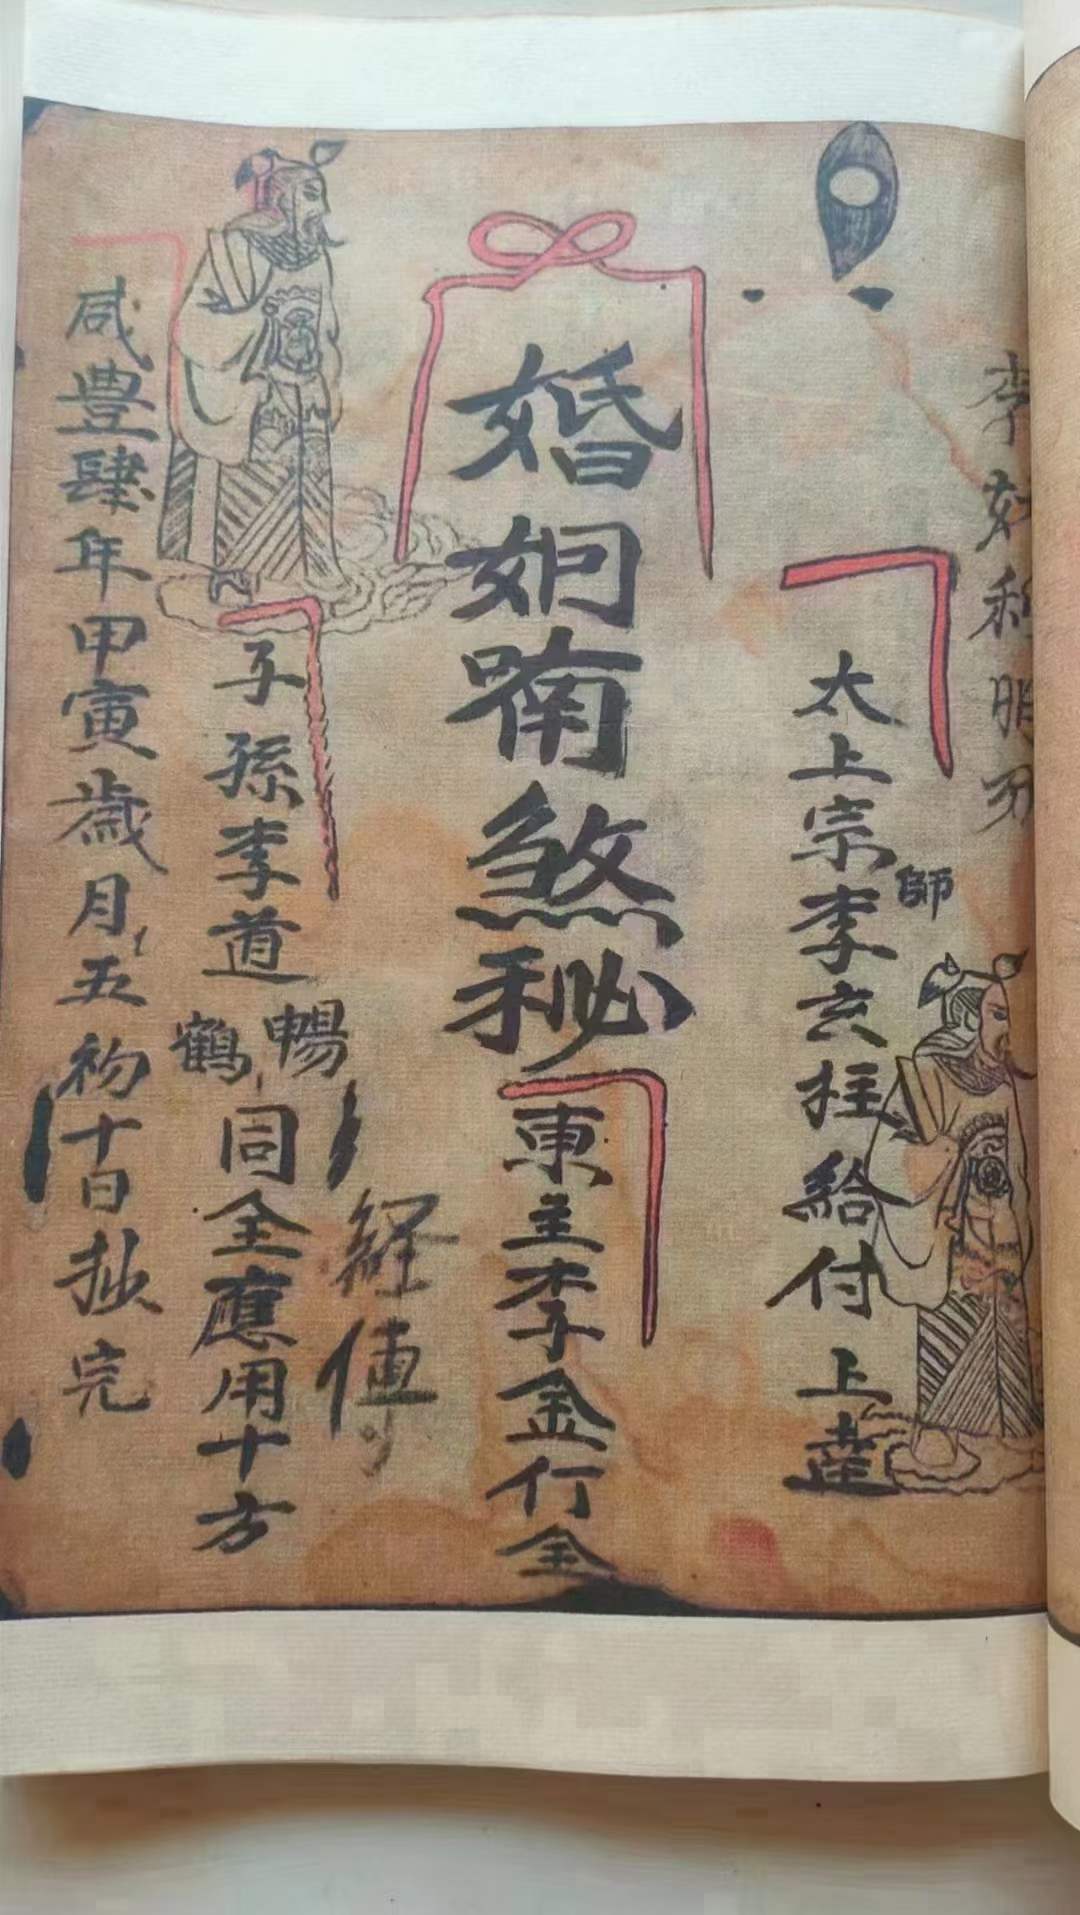 太上宗師李玄拄給付上達
婚姻喃煞秘
東主李金行全
經傳
子孫李道暢鶴同全應用十方
咸豐肆年甲寅歲月五初十日抄完